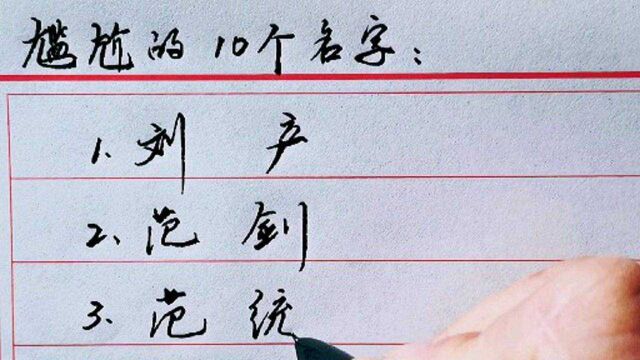 尴尬的10个名字：
1、刘产
2、范剑
3、范统